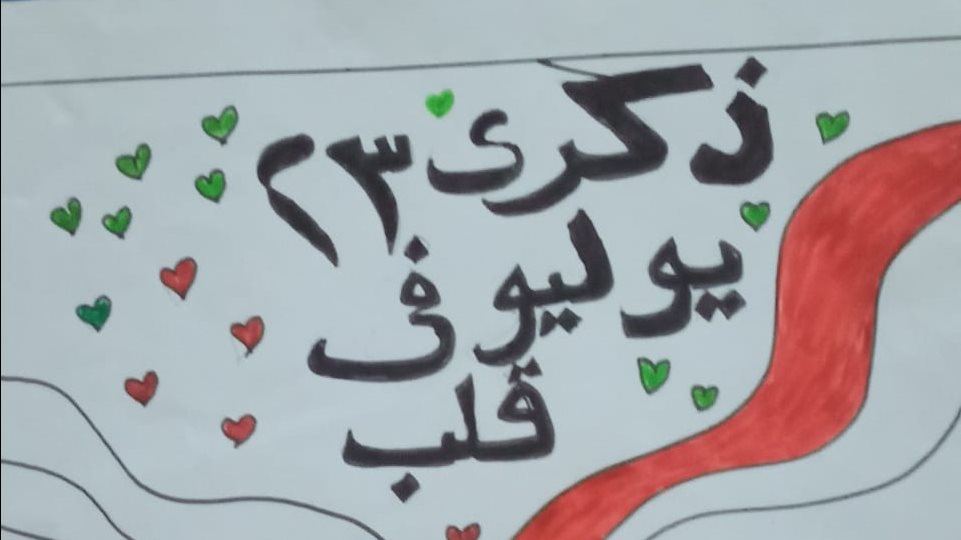 ذكرى ٢٣
يوليو فى
قلب